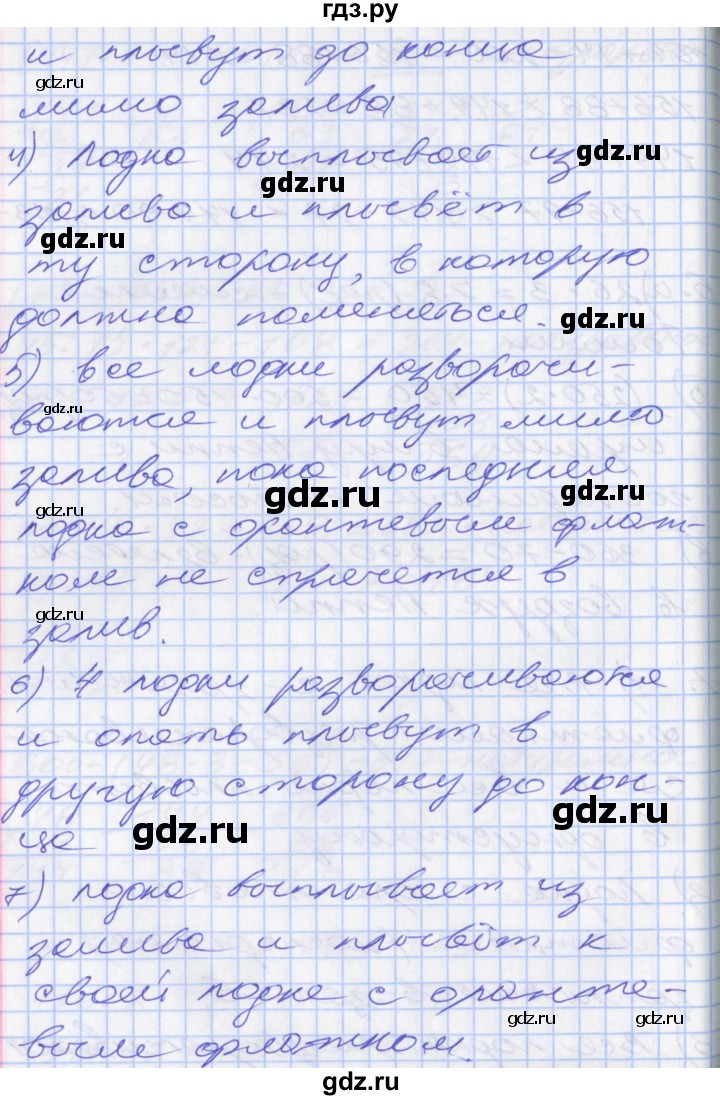 гдз.ру
и плывут до конца
gdz.ru
мимо залива
4) Лодка выплывает из
gdz.ru
gdz.ru
залива и плывёт в
gdz.ru
ту сторону, в которую
должна поменяться.
gdz.ru
5) все лодки разворачи-
gdz.ru
ваются и плывут мимо
залива, пока последняя
gdz.ru
gdz.ru
лодка с оранжевым флаж-
ком не спрячется в
gdz.ru
залив.
6) 4 лодки разворачиваются
и опять плывут в
другую сторону до кон-
gdz.ru
gdz.ru
ца
7) лодка выплывает из
залива и плывёт к
своей лодке с оранже-
gdz.ru
gdz.ru
вым флажком.
gdz.ru